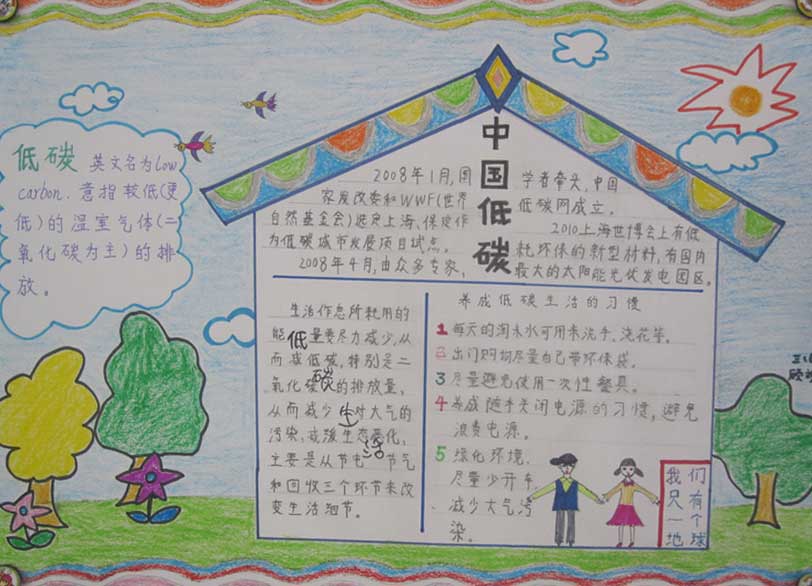 低碳 英文名为low
carbon.意指较低(更
低)的温室气体(二
氧化碳为主)的排
放。
中国低碳
2008年1月,国
家发改委和WWF(世界
自然基金会)选定上海、保定作
为低碳城市发展项目试点。
2008年4月,由众多专家、
学者牵头,中国
低碳网成立。
2010上海世博会上有低
耗环保的新型材料,有国内
最大的太阳能光伏发电园区。
低碳生活
生活作息所耗用的
能量要尽力减少,从
而减低碳,特别是二
氧化碳的排放量,
从而减少对大气的
污染,减缓生态恶化,
主要是从节电 节气
和回收三个环节来改
变生活细节。
养成低碳生活的习惯
1 每天的淘米水可用来洗手、浇花等。
2 出门购物尽量自己带环保袋。
3 尽量避免使用一次性餐具。
4 养成随手关闭电源的习惯,避免
浪费电源。
5 绿化环境,
尽量少开车,
减少大气污
染。
我们
只有
一个
地球